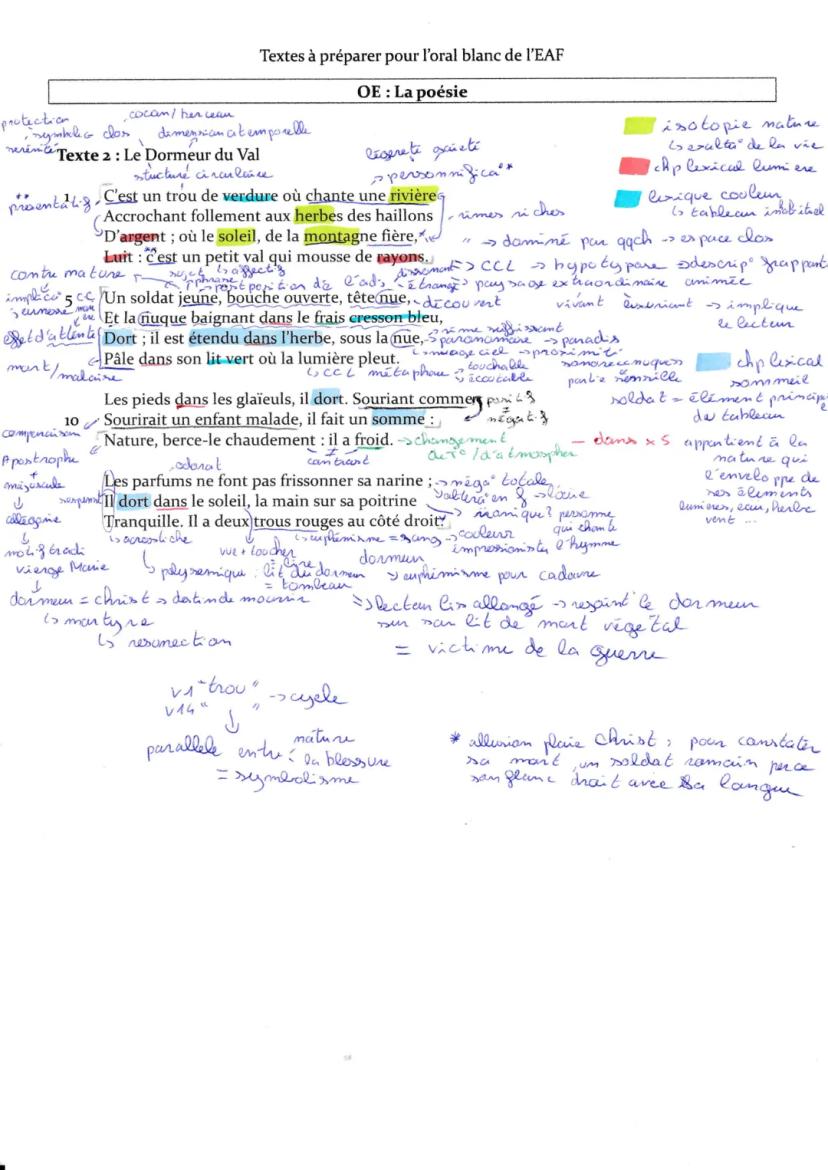 Textes à préparer pour l'oral blanc de l'EAF
OE : La poésie
protection
cocon/ berceau
symbolic clos
dimension atemporelle
sérénité
Texte 2 : Le Dormeur du Val
structure circulaire
légereté gaieté
→ personnifica°*
isotopie nature
↳ exalta° de la vie
chp lexical lumiere
lexique couleur
↳ tableau inhabituel
** présentatif
1 C'est un trou de verdure où chante une rivière
Accrochant follement aux herbes des haillons
rimes riches
D'argent ; où le soleil, de la montagne fière,*
" → dominé par qqch → espace clos
Luit : c'est un petit val qui mousse de rayons.
⇒ CCL → hypotypose → descrip° frappante
contre nature
postposition de l'adj
étrange
paysage extraordinaire animée
5 Un soldat jeune, bouche ouverte, tête nue,
découvert
vivant luxuriant → implique
le lecteur
Et la nuque baignant dans le frais cresson bleu,
effet d'attente
Dort ; il est étendu dans l'herbe, sous la nue,
rime suffisante
→ paronomase → paradis
Pâle dans son lit vert où la lumière pleut.
mort/malaise
↳ CCL métaphore
touchable
écoutable
chp lexical
sommeil
Les pieds dans les glaïeuls, il dort. Souriant comme
positif
soldat = élément principal
du tableau
10 Sourirait un enfant malade, il fait un somme :
négatif
comparaison
Nature, berce-le chaudement : il a froid.
→ changement
de T° / d'atmosphère
— dans x5
appartient à la
nature qui
l'enveloppe de
ses éléments
lumières, eau, herbe
vent ...
Apostrophe
+
majuscule
↓
allégorie
↓
motif tradi
Vierge Marie
↓
odorat
contrast
Les parfums ne font pas frissonner sa narine ;
→ néga° totale
Il dort dans le soleil, la main sur sa poitrine
Tranquille. Il a deux trous rouges au côté droit.
→ ironique? personne
qui chante
l'hymne
↳ acrostiche
↳ euphémisme = sang → couleur
impressionniste
vue + toucher
↳ polysemique : lit du dormeur
= tombeau
dormeur
↳ euphémisme pour cadavre
dormeur = christ → destin de mourir
↳ martyre
↳ résurrection
⇒ lecteur lis allongé → rejoint le dormeur
sur son lit de mort végétal
= victime de la guerre
v1 "trou"
v14 " "
→ cycle
↓
parallèle entre : nature
la blessure
= symbolisme
* allusion plaie Christ ; pour constater
sa mort, un soldat romain perce
son flanc droit avec sa langue